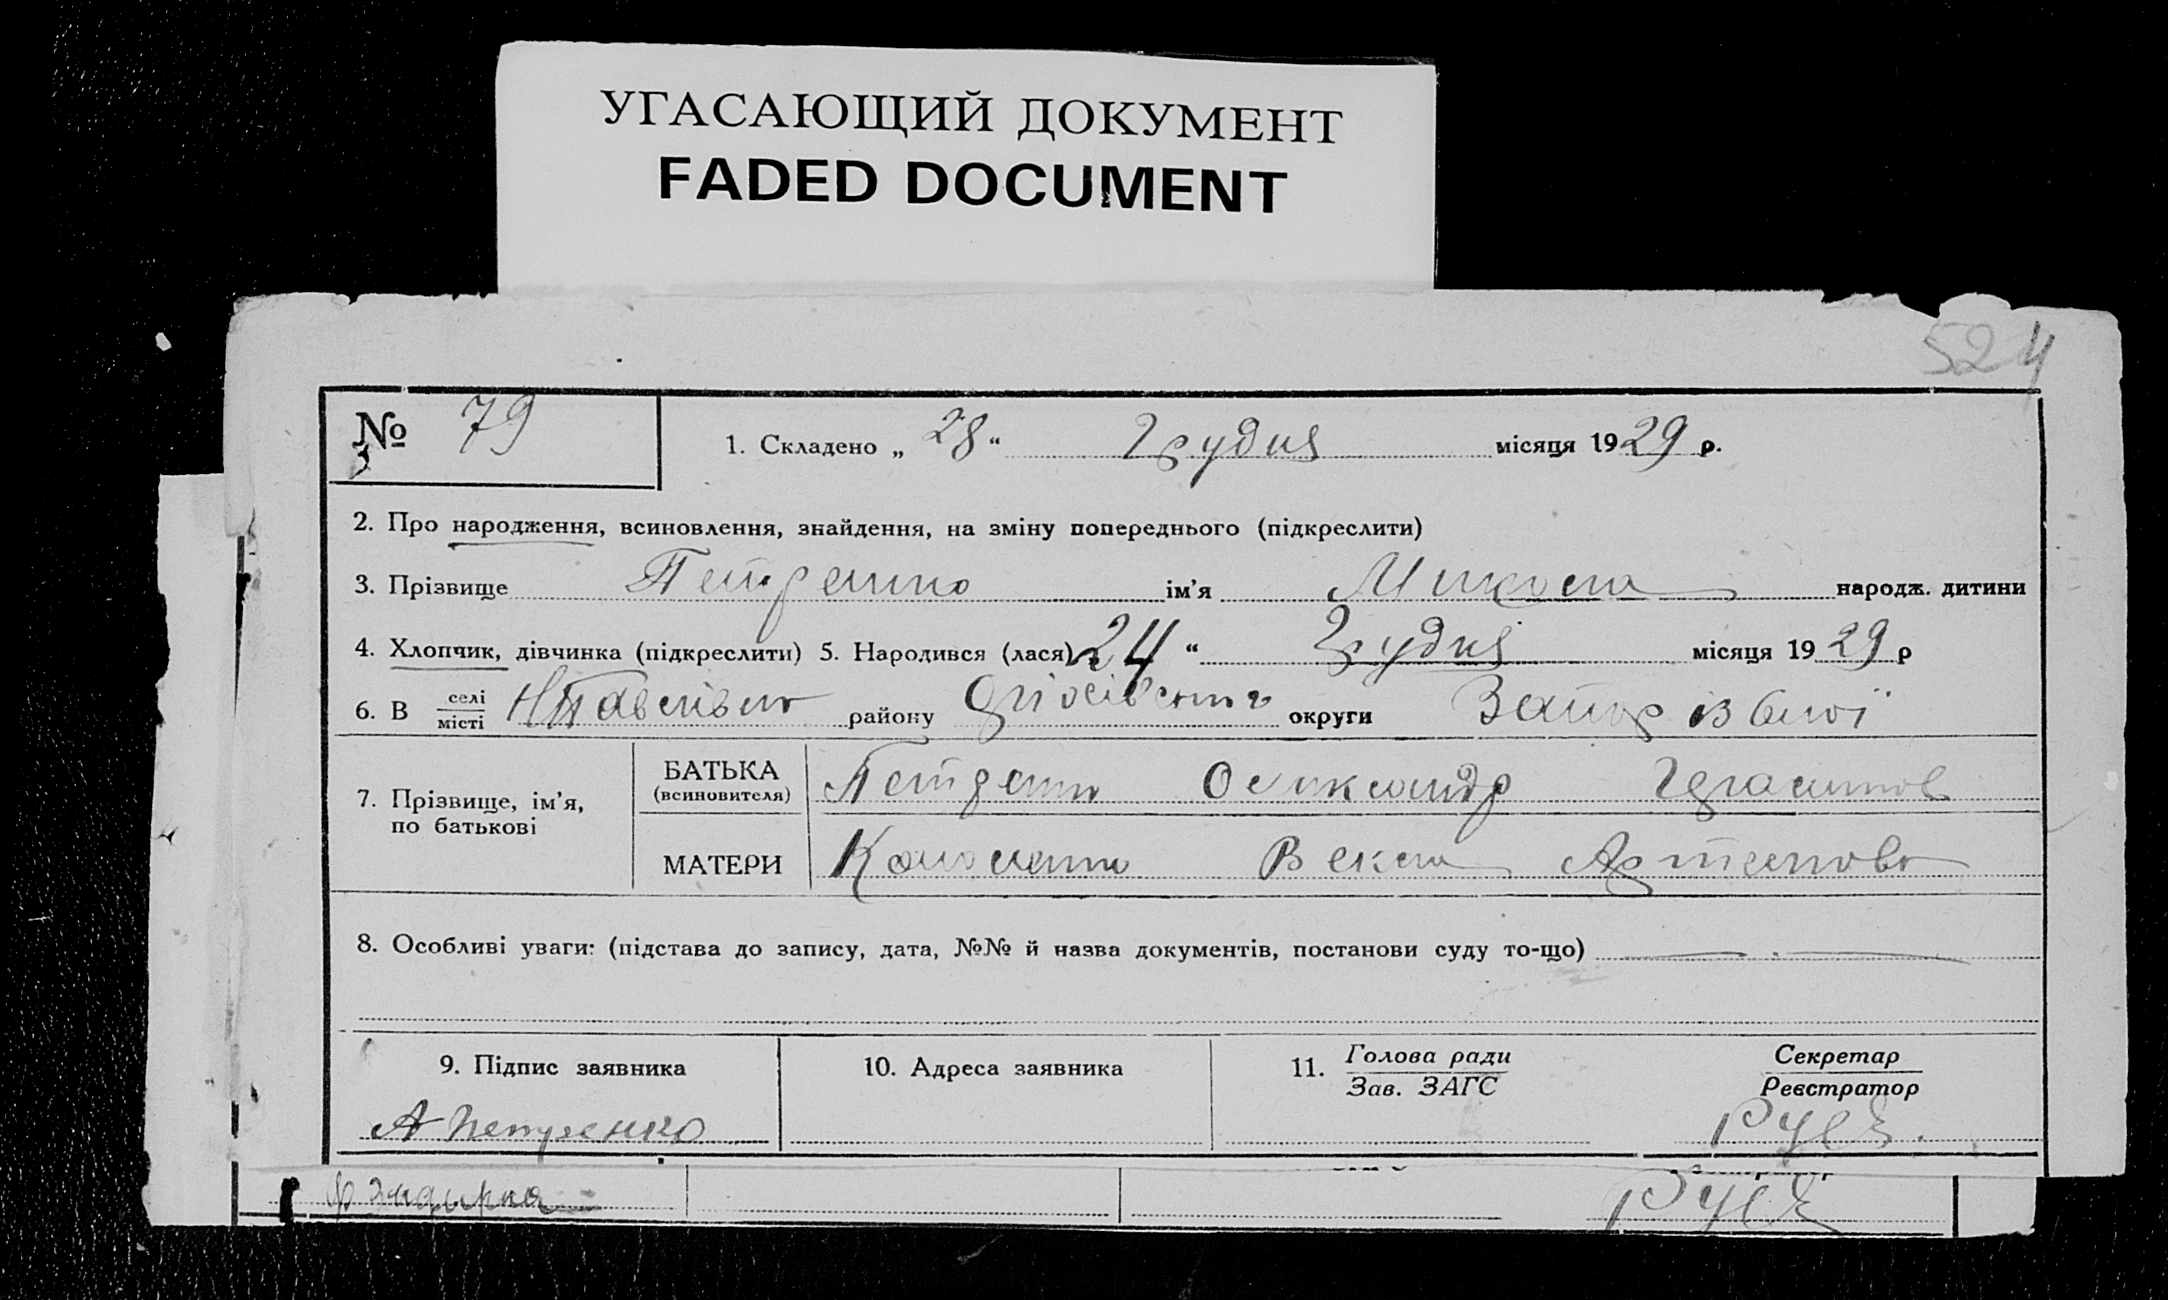 УГАСАЮЩИЙ ДОКУМЕНТ
FADED DOCUMENT
524
№ 79
1. Складено „ 28 “ Грудня місяця 1929 р.
2. Про народження, всиновлення, знайдення, на зміну попереднього (підкреслити)
3. Прізвище Петренко ім’я Микола народж. дитини
4. Хлопчик, дівчинка (підкреслити) 5. Народився (лася) 24 “ Грудня місяця 1929 р
6. В селі місті району округи Запорізької
7. Прізвище, ім’я, по батькові
БАТЬКА (всиновителя) Петренко Олександр
МАТЕРИ Векла Артемова
8. Особливі уваги: (підстава до запису, дата, №№ й назва документів, постанови суду то-що)
9. Підпис заявника
10. Адреса заявника
11. Голова ради Зав. ЗАГС
Секретар Реєстратор
А Петренко